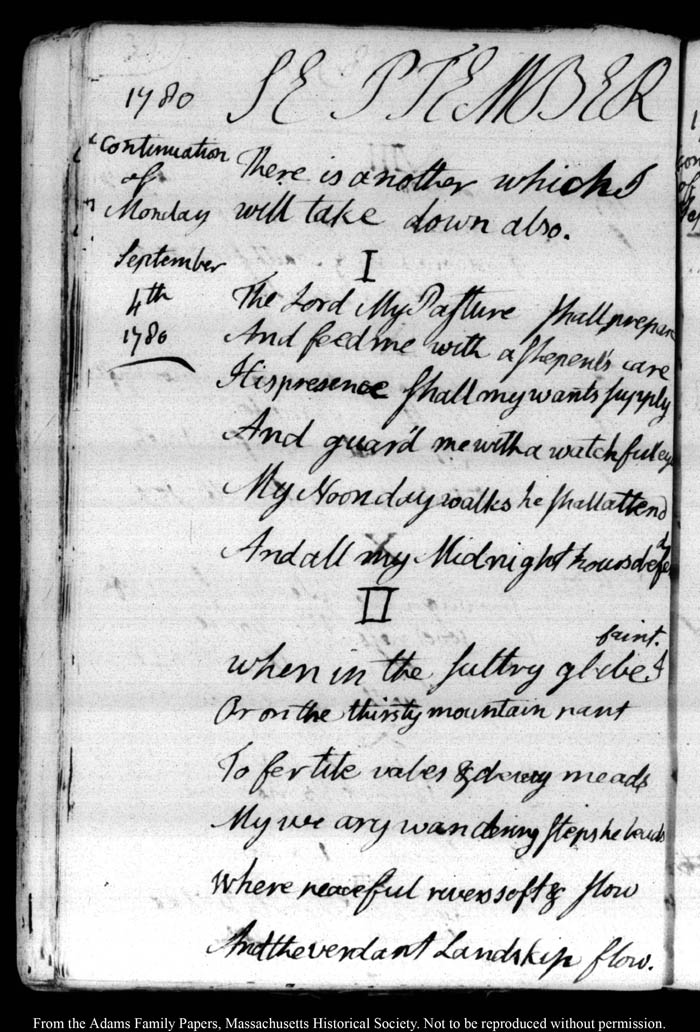 1780 SEPTEMBER
Continuation
of
Monday
September
4th
1780
There is another which I
will take down also.
I
The Lord My Pasture shall prepare
And feed me with a sheperd's care
His presence shall my wants supply
And guard me with a watchful eye
My Noonday walks he shall attend
And all my Midnight hours defend
II
when in the sultry glebe I
faint.
Or on the thirsty mountain pant
To fertile vales & dewy meads
My weary wandering steps he leads
Where peaceful rivers soft & slow
And the verdant Landskip flow.
From the Adams Family Papers, Massachusetts Historical Society. Not to be reproduced without permission.